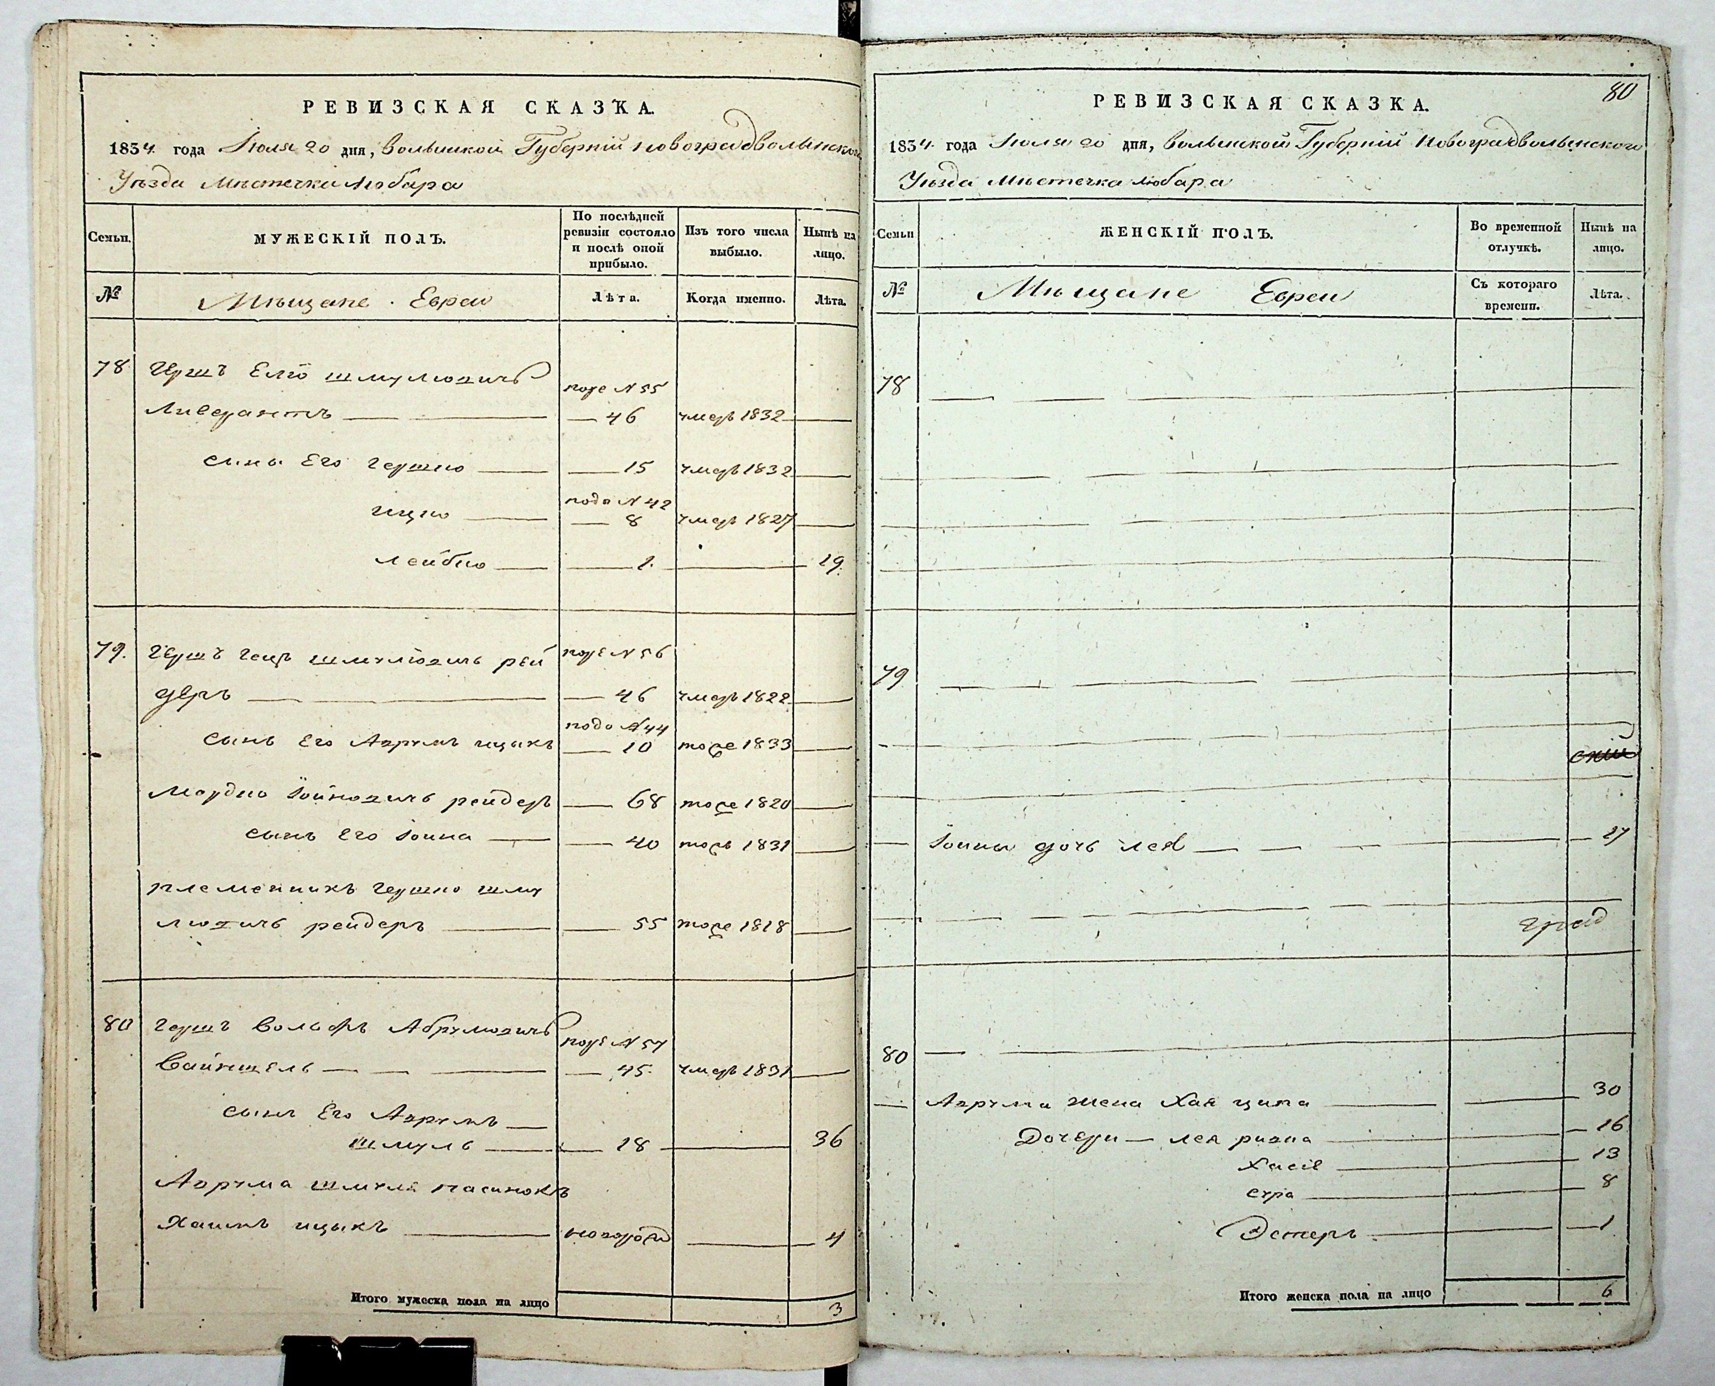 РЕВИЗСКАЯ СКАЗКА.
1834 года Июля 20 дня, Волынской Губернiи Новоградволынского
Уѣзда Мѣстечка Любара
Семьи.
МУЖЕСКIЙ ПОЛЪ.
По послѣдней ревизiи состояло и послѣ оной прибыло.
Изъ того числа выбыло.
Нынѣ на лицо.
№
Мѣщане Евреи
Лѣта.
Когда именно.
Лѣта.
78 Гершъ Елiо Шмулiовичъ
по ре № 55
Ливерантъ 46 умеръ 1832
сынъ Его Гершко 15 умеръ 1832
подо № 42
Ицко 8 умеръ 1827
Лейбко 1. 19.
79. Гершъ Шмулiовичъ Рей
по ре № 56
деръ 46 умеръ 1822
подо № 44
сынъ Его Аврумъ Ицыкъ 10 тоже 1833
Мордко Iойновичъ Рейдеръ 68 тоже 1820
сынъ Его Iойна 40 тоже 1831
племенникъ Гершко Шму
лiовичъ Рейдеръ 55 тоже 1818
80 Гершъ Вольфъ Абрумовичъ
по ре № 57
Вайншель 45. умеръ 1831
сынъ Его Аврумъ
Шмуль 18 36
Аврума Шмуля пасынокъ
Хаимъ Ицыкъ новорожд 4
Итого мужеска пола на лицо 3
80
РЕВИЗСКАЯ СКАЗКА.
1834 года Июля 20 дня, Волынской Губернiи Новоградволынского
Уѣзда Мѣстечка Любара
Семьи
ЖЕНСКIЙ ПОЛЪ.
Во временной отлучкѣ.
Нынѣ на лицо.
№
Мѣщане Евреи
Съ котораго времени.
Лѣта.
78
79
скiй
Iойны дочь Лея 17
град
80
Аврума жена Хая Ципа 30
Дочери Лея Ривка 16
Хася 13
Сура 8
Эстеръ 1
Итого женска пола на лицо 6